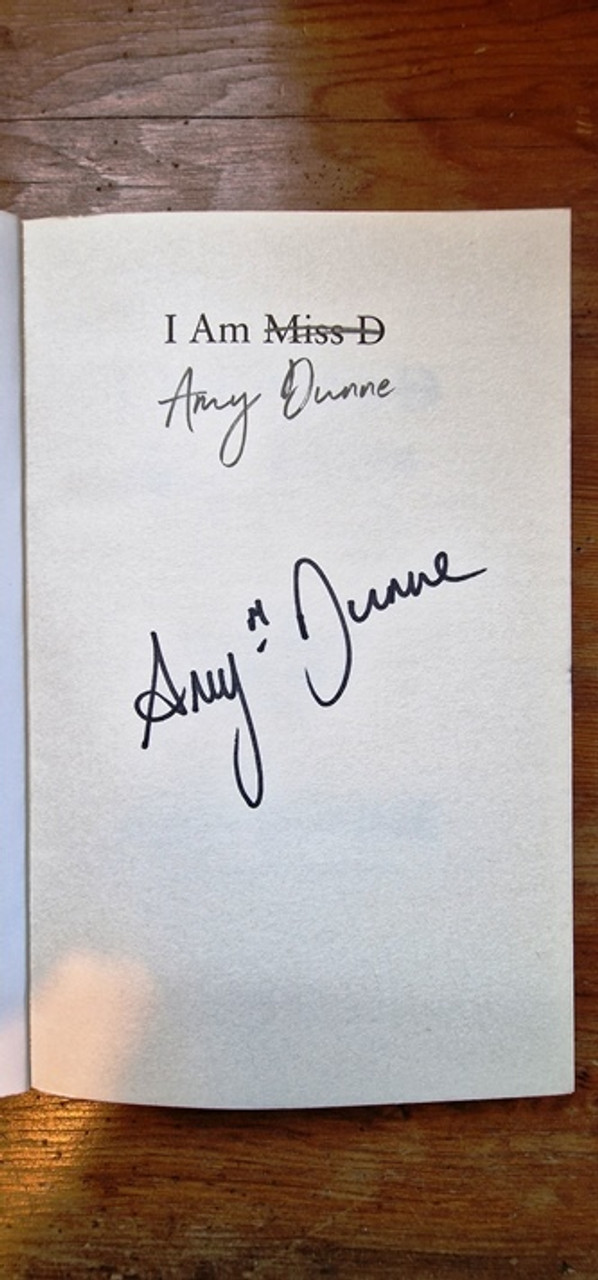 I Am Miss D
Amy Dunne
Amy Dunne